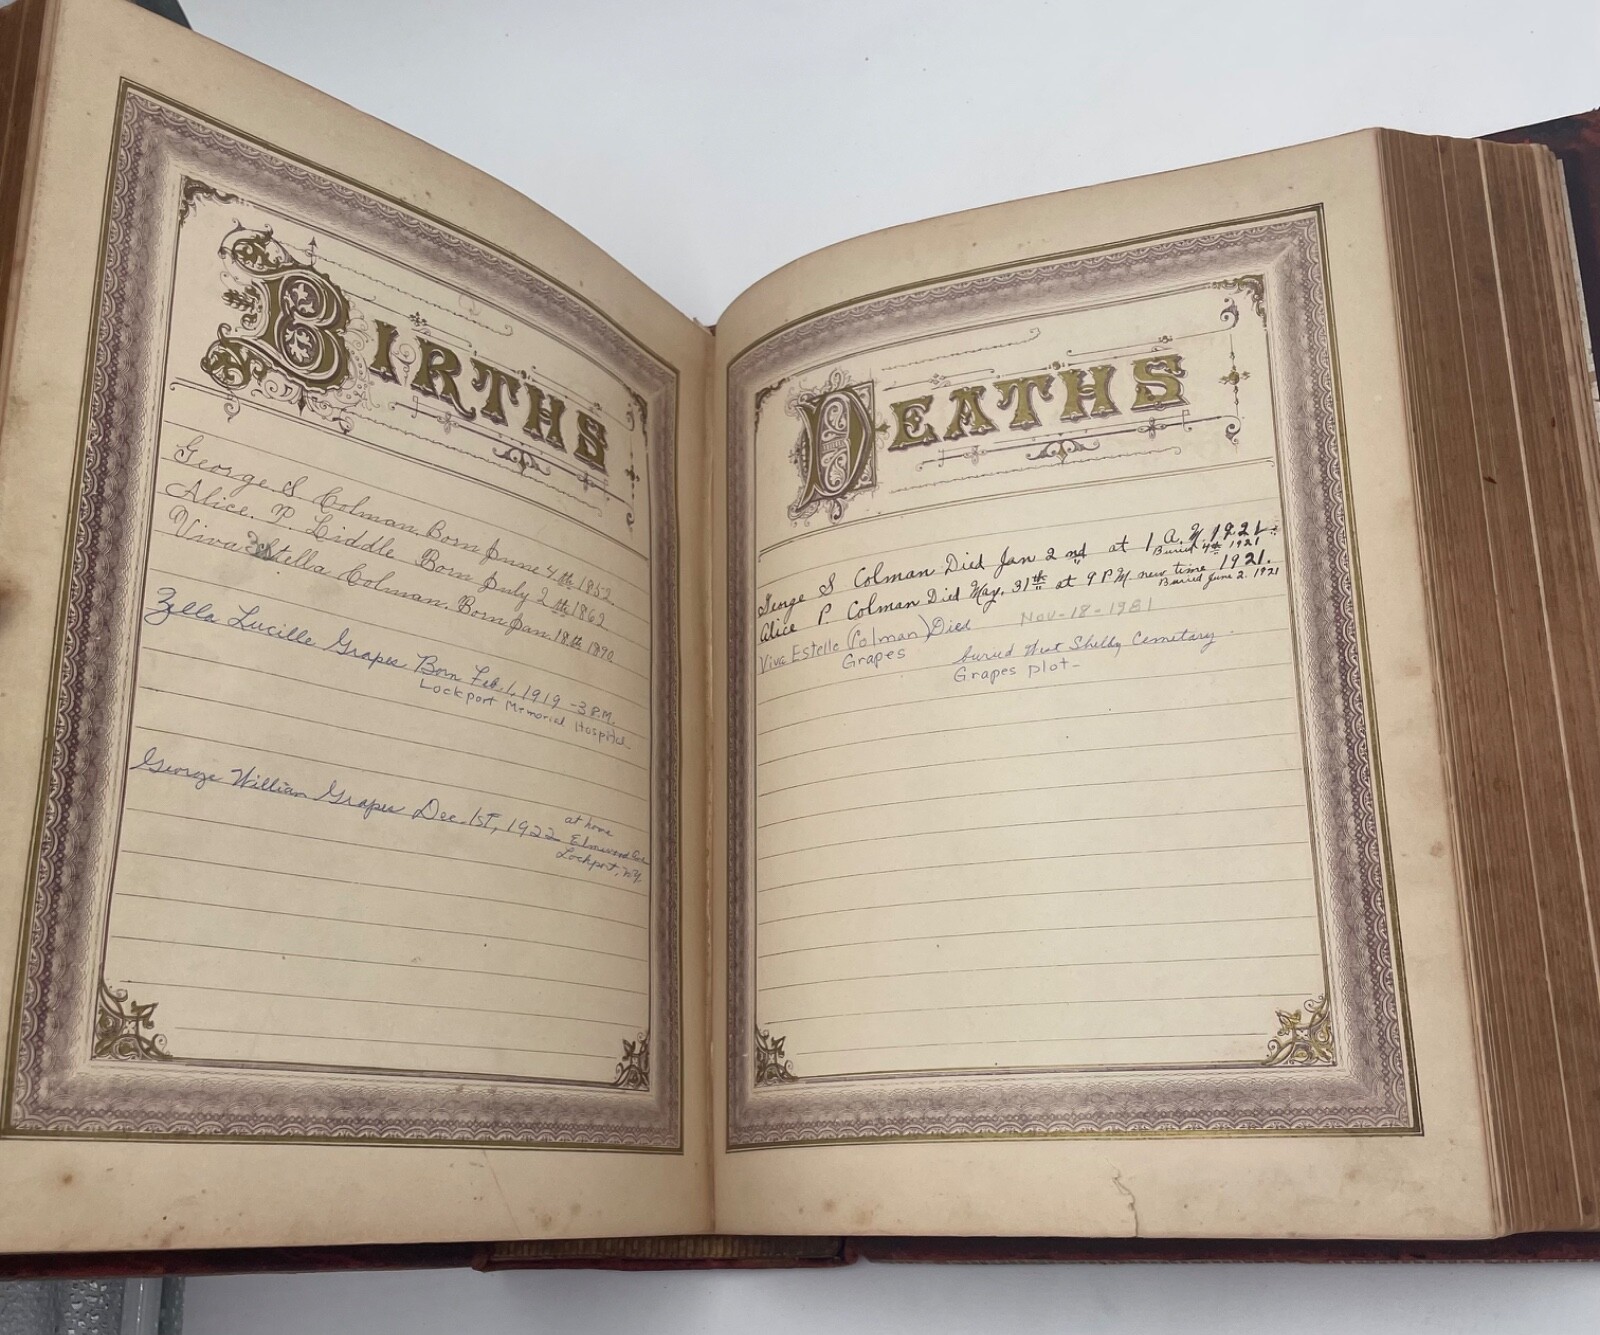 BIRTHS
George S Colman Born June 4th 1852
Alice. P. Liddle Born July 2th 1862
Viva Estella Colman. Born Jan. 18th 1890
Zella Lucille Grapes Born Feb. 1, 1919 - 3 P.M.
Lockport Memorial Hospital-
George William Grapes Dec. 1st, 1922
at home
Elmwood Ave
Lockport, N.Y.
DEATHS
George S Colman Died Jan 2nd at 1 A.M. 1921
Buried 4th 1921
Alice P. Colman Died May. 31th at 9 P.M. new time 1921.
Buried June 2. 1921
Viva Estelle (Colman) Died Nov-18-1981
Grapes buried West Shelby Cemetary.
Grapes plot-